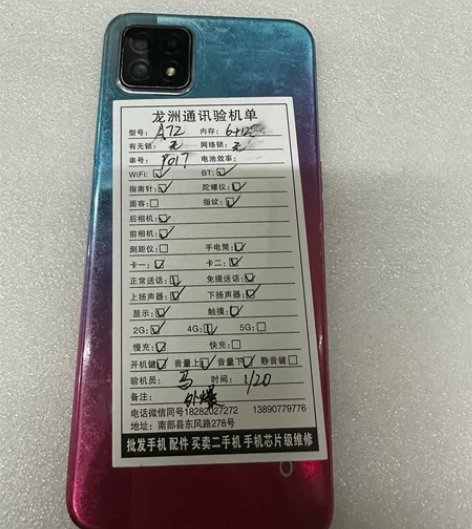 龙洲通讯验机单
型号: A72 内存: 6+128
有无锁: 无 网络锁: 无
串号: P017 电池效率:
WiFi: ☑ BT: ☑
指南针: ☑ 陀螺仪: ☑
面容: □ 指纹: ☑
后相机: ☑
前相机: ☑
测距仪: □ 手电筒: ☑
卡一: ☑ 卡二: ☑
正常送话: ☑ 免提送话: ☑
上扬声器: ☑ 下扬声器: ☑
显示: ☑ 触摸: ☑
2G: ☑ 4G: ☑ 5G: □
慢充: ☑ 快充: □
开机键☑ 音量上☑ 音量下☑ 静音键□
验机员: 马 时间: 1/20
备注: 外爆
电话微信同号18282027272 13890779776
地址: 南部县东风路278号
批发手机 配件 买卖二手机 手机芯片级维修